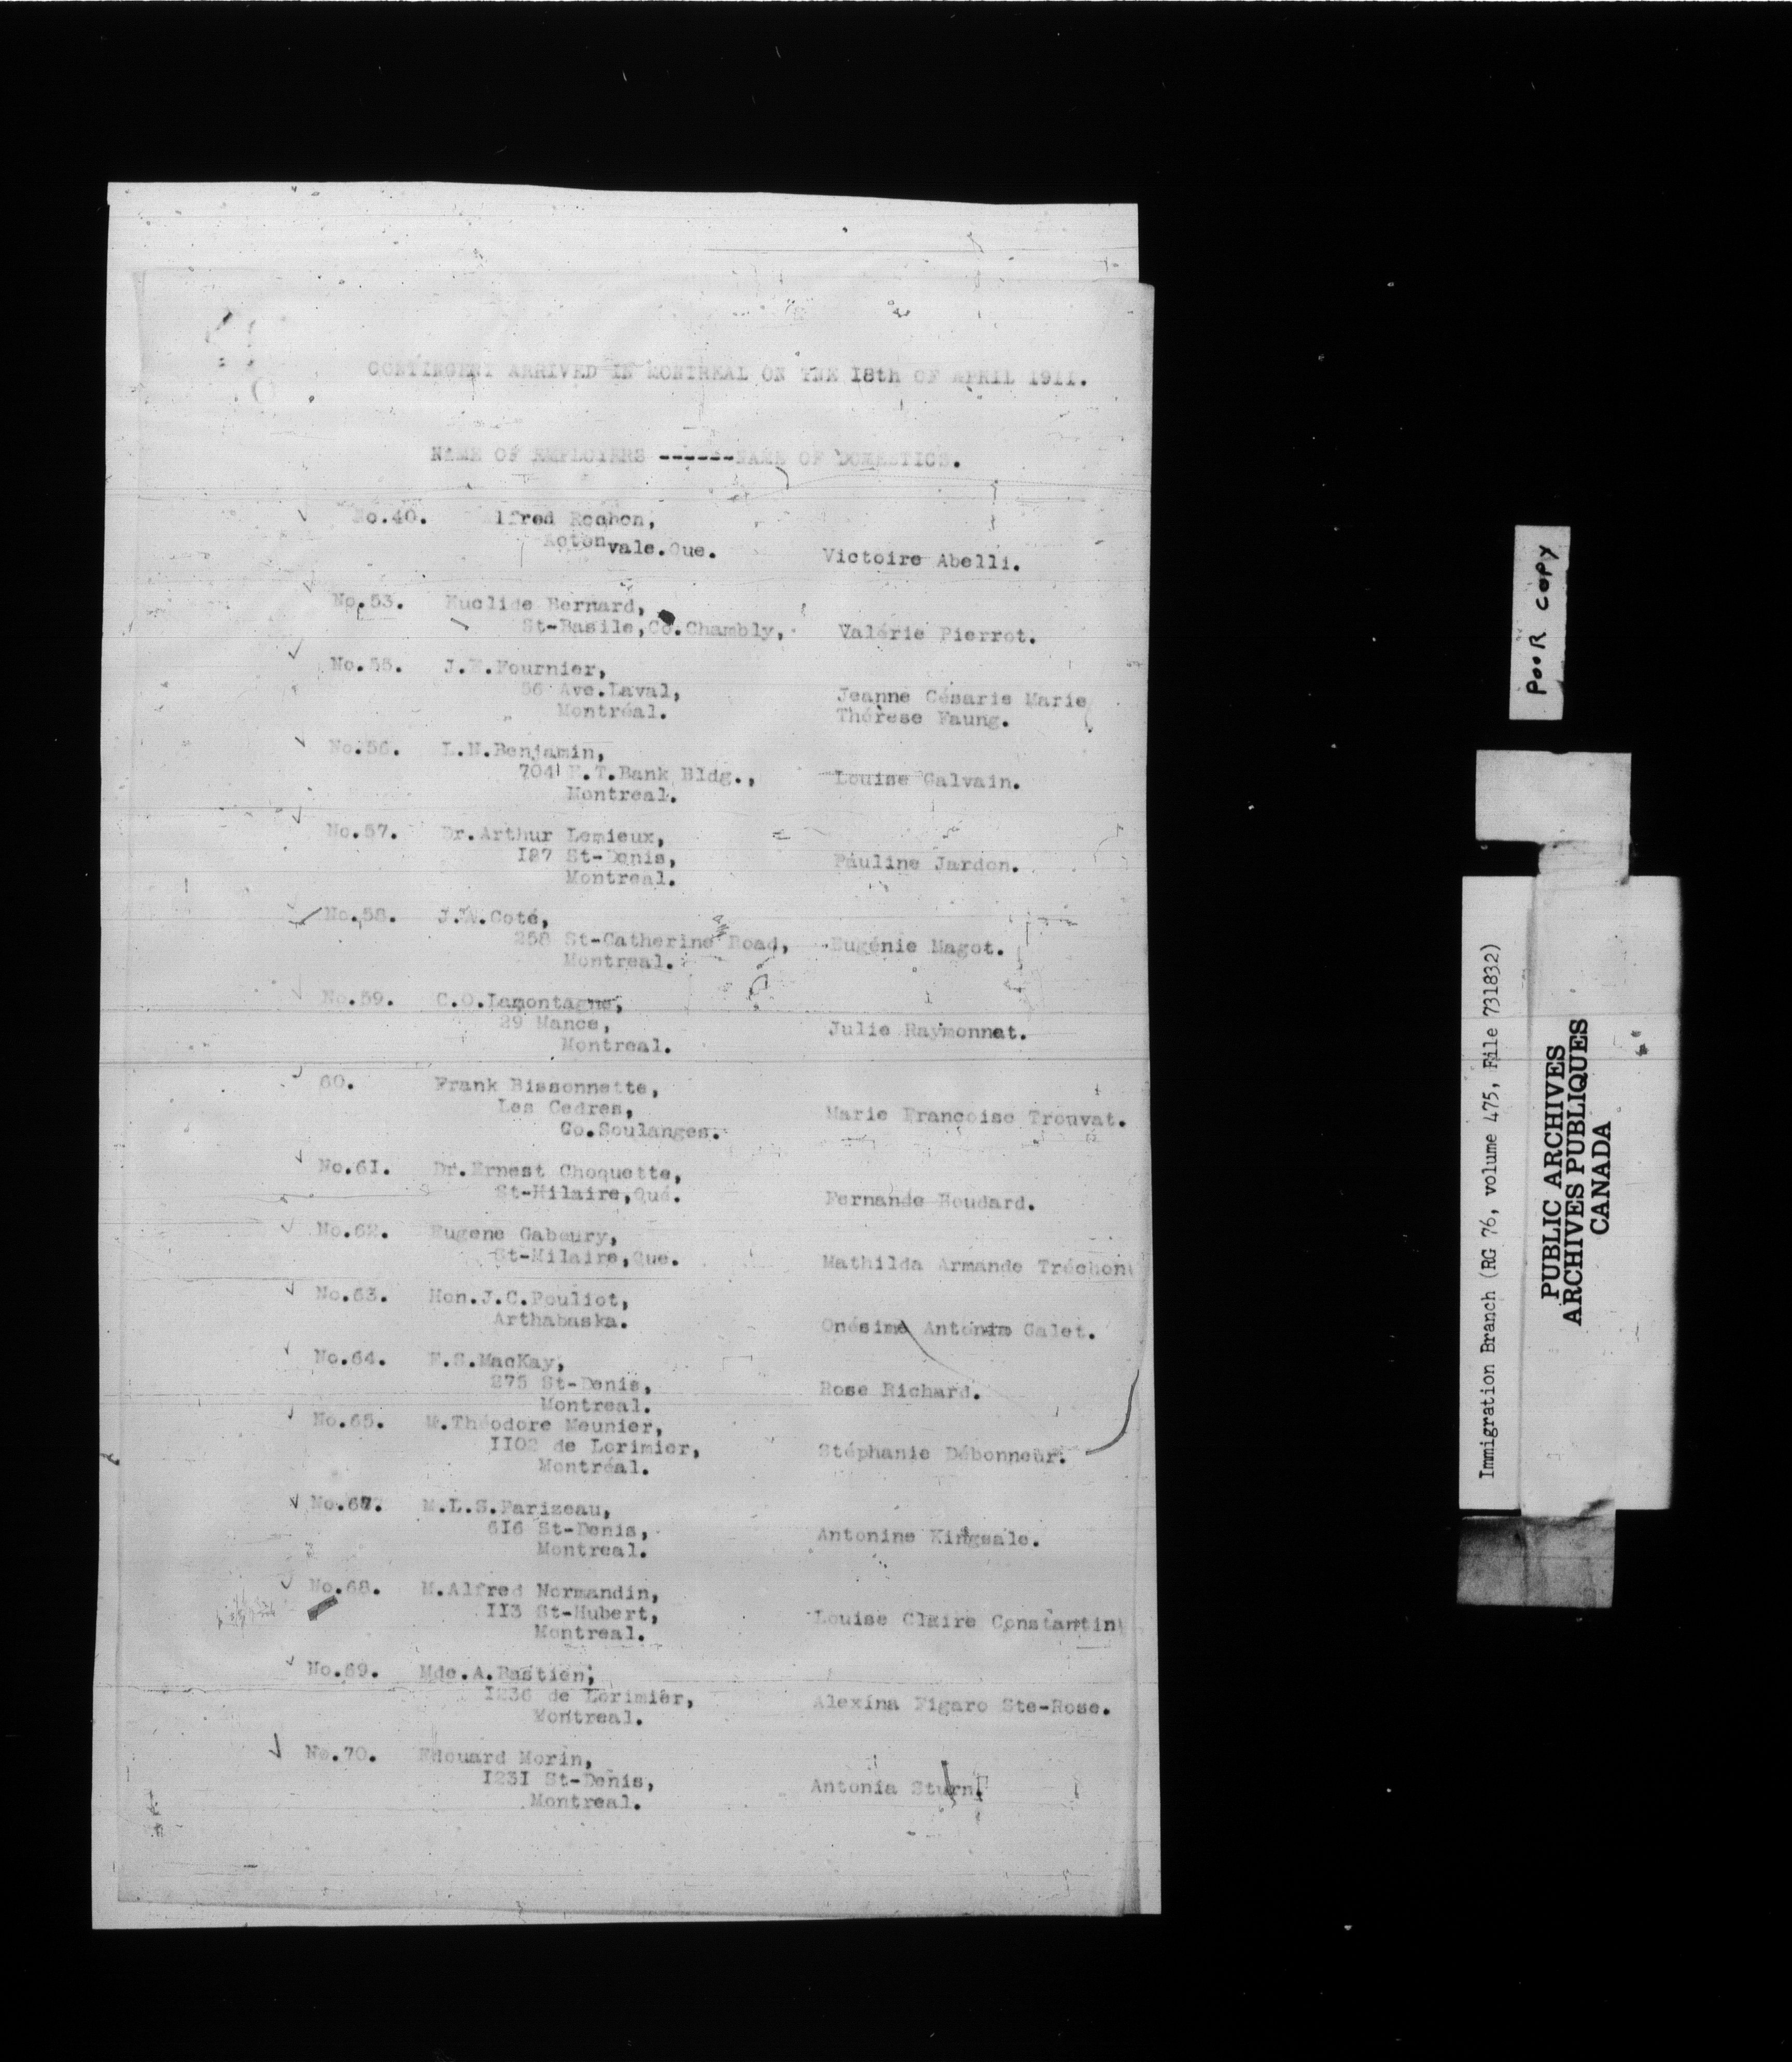 CONTINGENT ARRIVED IN MONTREAL ON THE 18th OF APRIL 1911.
NAME OF EMPLOYERS ------NAME OF DOMESTICS.
No.40. Alfred Rochon,
Acton vale.Que. Victoire Abelli.
No.53. Euclide Bernard,
St-Basile,Co.Chambly, Valérie Pierrot.
No.55. J.E.Fournier,
56 Ave.Laval, Jeanne Césarie Marie
Montréal. Thérese Faung.
No.56. L.N.Benjamin,
704 E.T.Bank Bldg., Louise Galvain.
Montreal.
No.57. Dr.Arthur Lemieux,
187 St-Denis, Pauline Jardon.
Montreal.
No.58. J.A.Coté,
258 St-Catherine Road, Eugénie Magot.
Montreal.
No.59. C.O.Lamontagne,
29 Mance, Julie Raymonnet.
Montreal.
60. Frank Bissonnette,
Les Cedres, Marie Françoise Trouvat.
Co.Soulanges.
No.61. Dr.Ernest Choquette,
St-Hilaire,Qué. Fernande Boudard.
No.62. Eugene Gaboury,
St-Hilaire,Que. Mathilda Armande Tréchon
No.63. Hon.J.C.Pouliot,
Arthabaska. Onésime Antonin Galet.
No.64. F.S.MacKay,
275 St-Denis, Rose Richard.
Montreal.
No.65. M.Théodore Meunier,
1102 de Lorimier, Stéphanie Débonneur.
Montréal.
No.67. M.L.S.Parizeau,
616 St-Denis, Antonine Kingsale.
Montreal.
No.68. M.Alfred Normandin,
113 St-Hubert, Louise Claire Constantin
Montreal.
No.69. Mde.A.Bastien,
1236 de Lorimier, Alexina Figaro Ste-Rose.
Montreal.
No.70. Edouard Morin,
1231 St-Denis, Antonia Sturn.
Montreal.
POOR COPY
Immigration Branch (RG 76, volume 475, File 731832)
PUBLIC ARCHIVES
ARCHIVES PUBLIQUES
CANADA